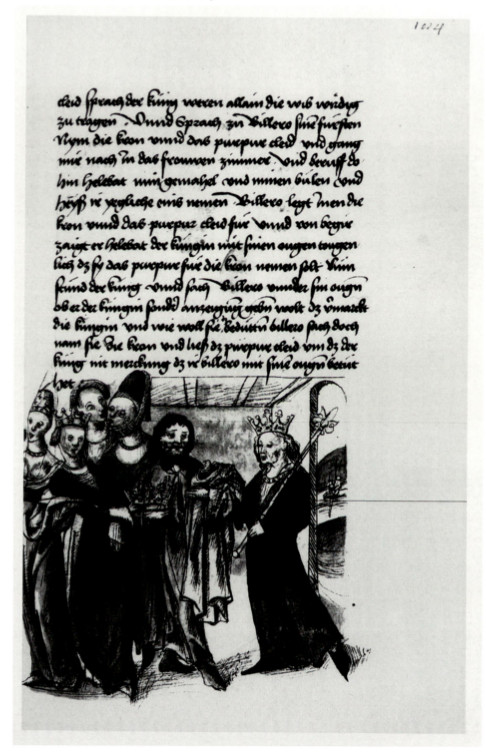 cleid sprach der küng weren allain die wib würdig
zu tragen Vnnd Sprach zu Billero sine fürsten
Nym die kron vnnd das purpur cleid vnd gang
mir nach in das frouwen zimmer Vnd beruff do
hin helebat min gemahel vnd minen bülen Vnd
heiß ir yegliche eins nemen Billero legt Inen die
kron vnnd das purpur cleid für Vnnd von begir
zaigt er helebat der küngin mit sinen ougen tougen
lich dz sy das purpur für die kron nemen solt Nun
stund der küng vnnd sach Billero vnnder sin ougn
ob er der küngin anzeigung gebn wolt dz
die küngin vnd wie woll sie billero sach doch
nam sie die kron vnd ließ dz purpure cleid vm dz der
küng nit merckung dz ir billero mit sine ougn betüt
het